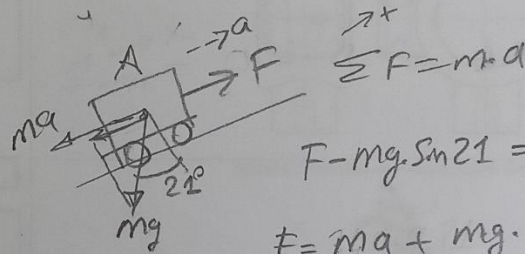 A
a
F
ma
21°
mg
+
ΣF = m.a
F - mg.Sin21 =
F = ma + mg.